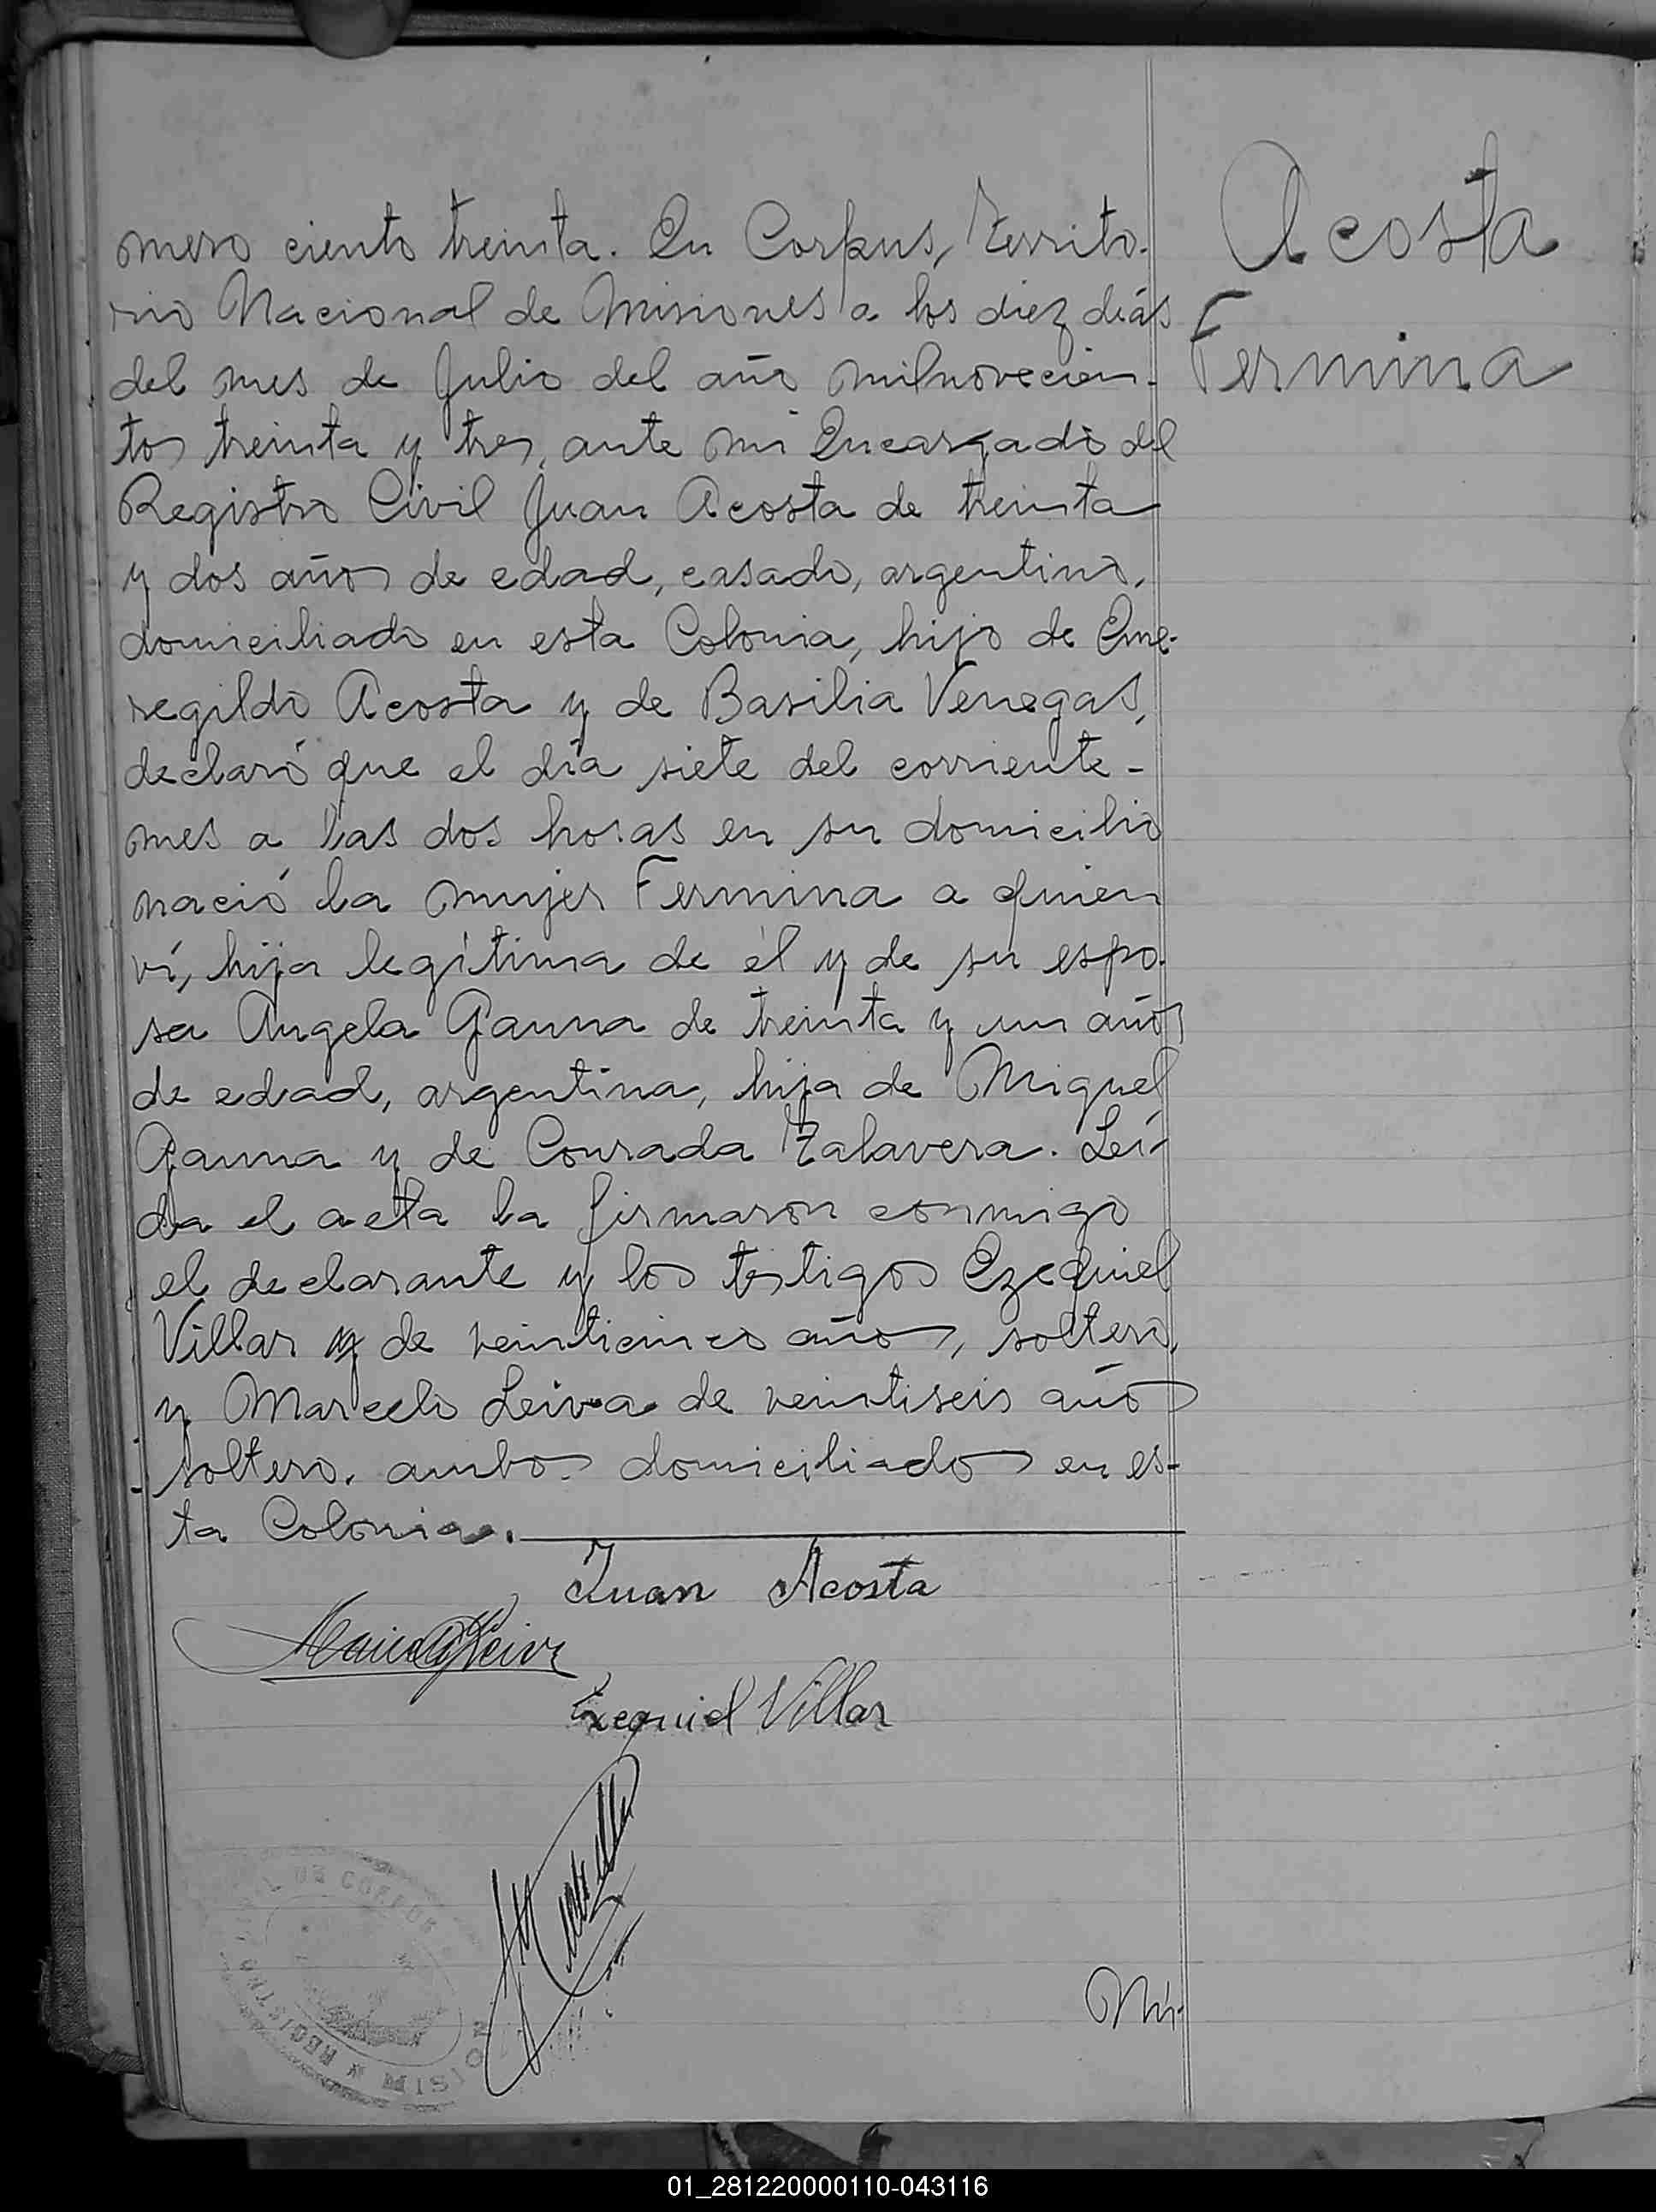 Acosta
Fermina
mero ciento treinta. En Corpus, Territo-
rio Nacional de Misiones a los diez días
del mes de Julio del año milnovecien-
tos treinta y tres, ante mi Encargado del
Registro Civil Juan Acosta de treinta
y dos años de edad, casado, argentino,
domiciliado en esta Colonia, hijo de Eme-
regildo Acosta y de Basilia Venegas,
declaró que el día siete del corriente-
mes a las dos horas en su domicilio
nació la mujer Fermina a quien
ví, hija legítima de él y de su espo-
sa Angela Gauna de treinta y un años
de edad, argentina, hija de Miguel
Gauna y de Conrada Talavera. Leí-
da el acta la firmaron conmigo
el declarante y los testigos Ezequiel
Villar y de veinticinco años, soltero,
y Marcelo Leiva de veintiseis años
soltero, ambos domiciliados en es-
ta Colonia.
Juan Acosta
Marcelo Leiva
Exequiel Villar
REGISTRO CIVIL DE CORPUS
MISIONES
Nú-
01_281220000110-043116